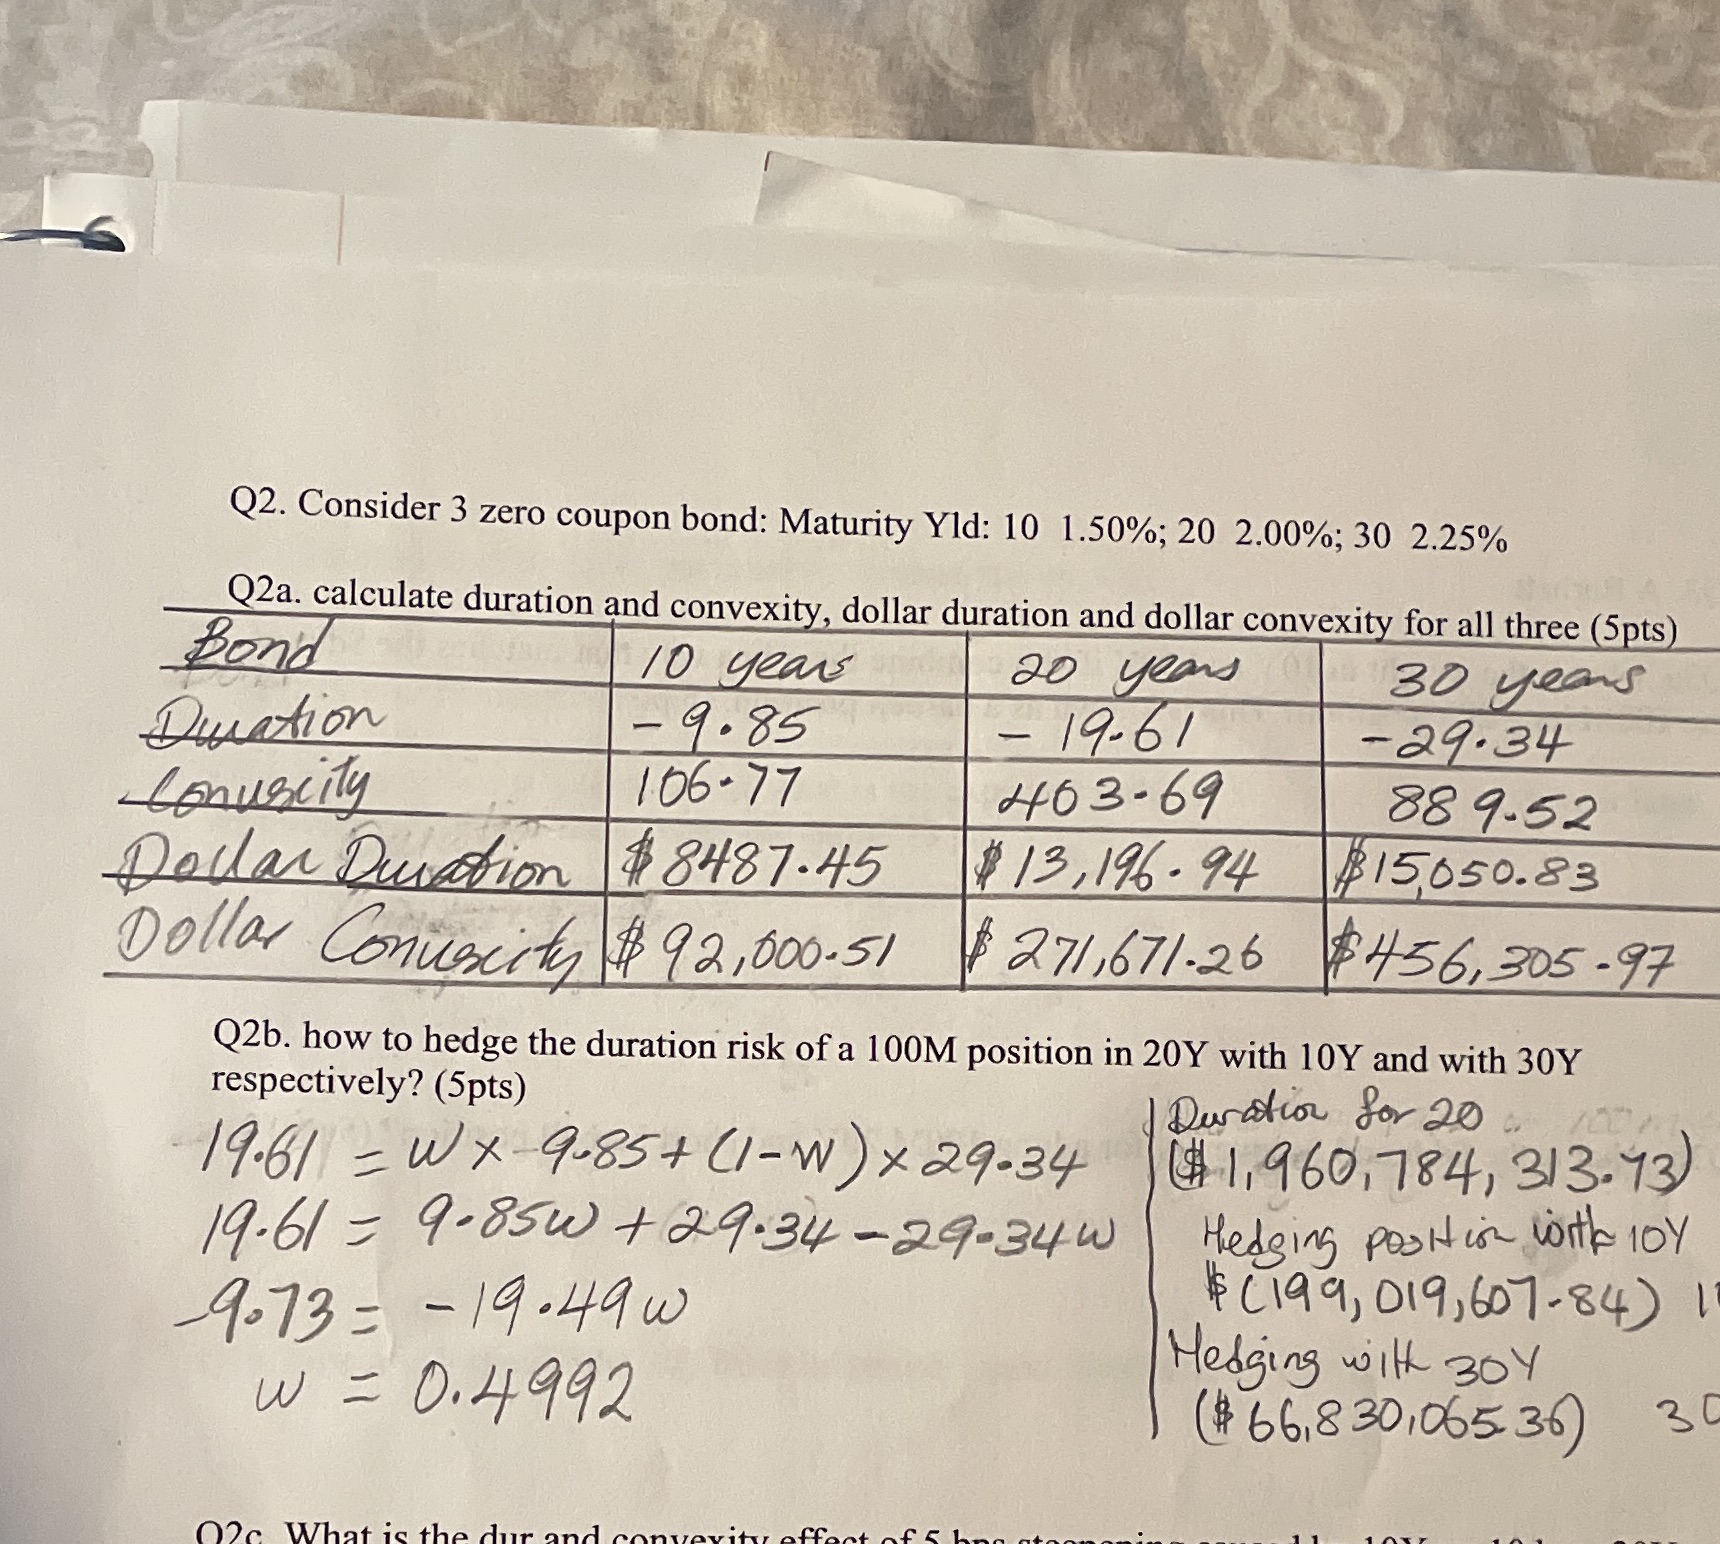 Q2. Consider 3 zero coupon bond: Maturity Yld: 10 1.50%; 20 2.00%; 30 2.25%
Q2a. calculate duration and convexity, dollar duration and dollar convexity for all three (5pts)
Bond 10 years 20 years 30 years
Duration -9.85 - 19.61 -29.34
Convexity 106.77 403.69 889.52
Dollar Duration $8487.45 $13,196.94 $15,050.83
Dollar Convexity $92,000.51 $271,671.26 $456,305.97
Q2b. how to hedge the duration risk of a 100M position in 20Y with 10Y and with 30Y
respectively? (5pts)
19.61 = W x 9.85 + (1-W) x 29.34
19.61 = 9.85w + 29.34 - 29.34w
-9.73 = -19.49w
w = 0.4992
Duration for 20
($1,960,784,313.73)
Hedging position with 10Y
$(199,019,607.84)
Hedging with 30Y
($66,830,065.36)
Q2c. What is the dur and convexity effect of 5 bps steepening